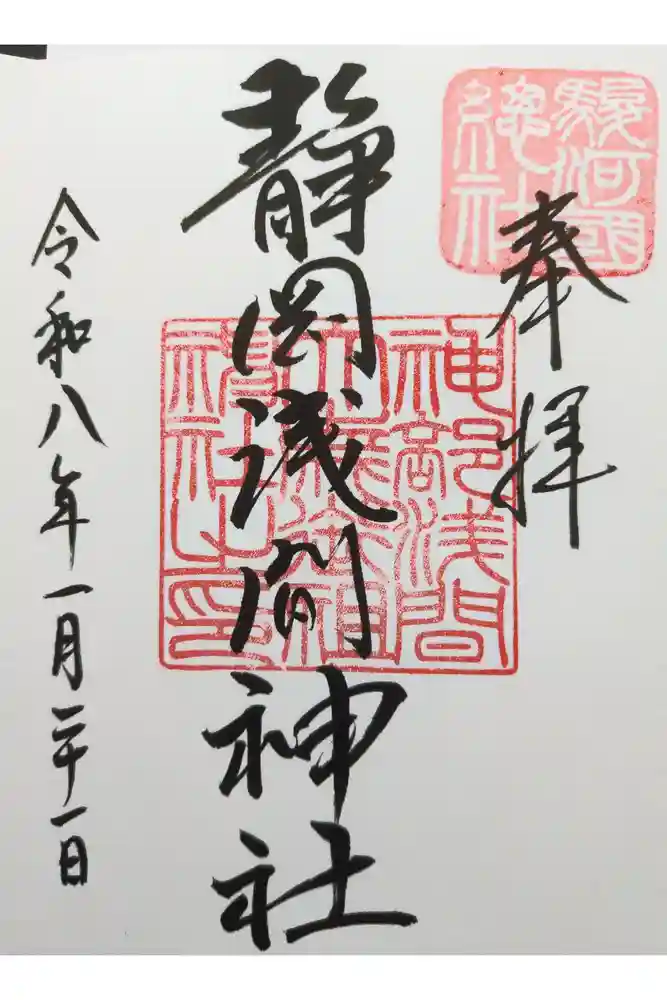 駿河國
總社
奉拝
静岡浅間神社
神部浅間
大歳御祖
神社之印
令和八年一月二十一日